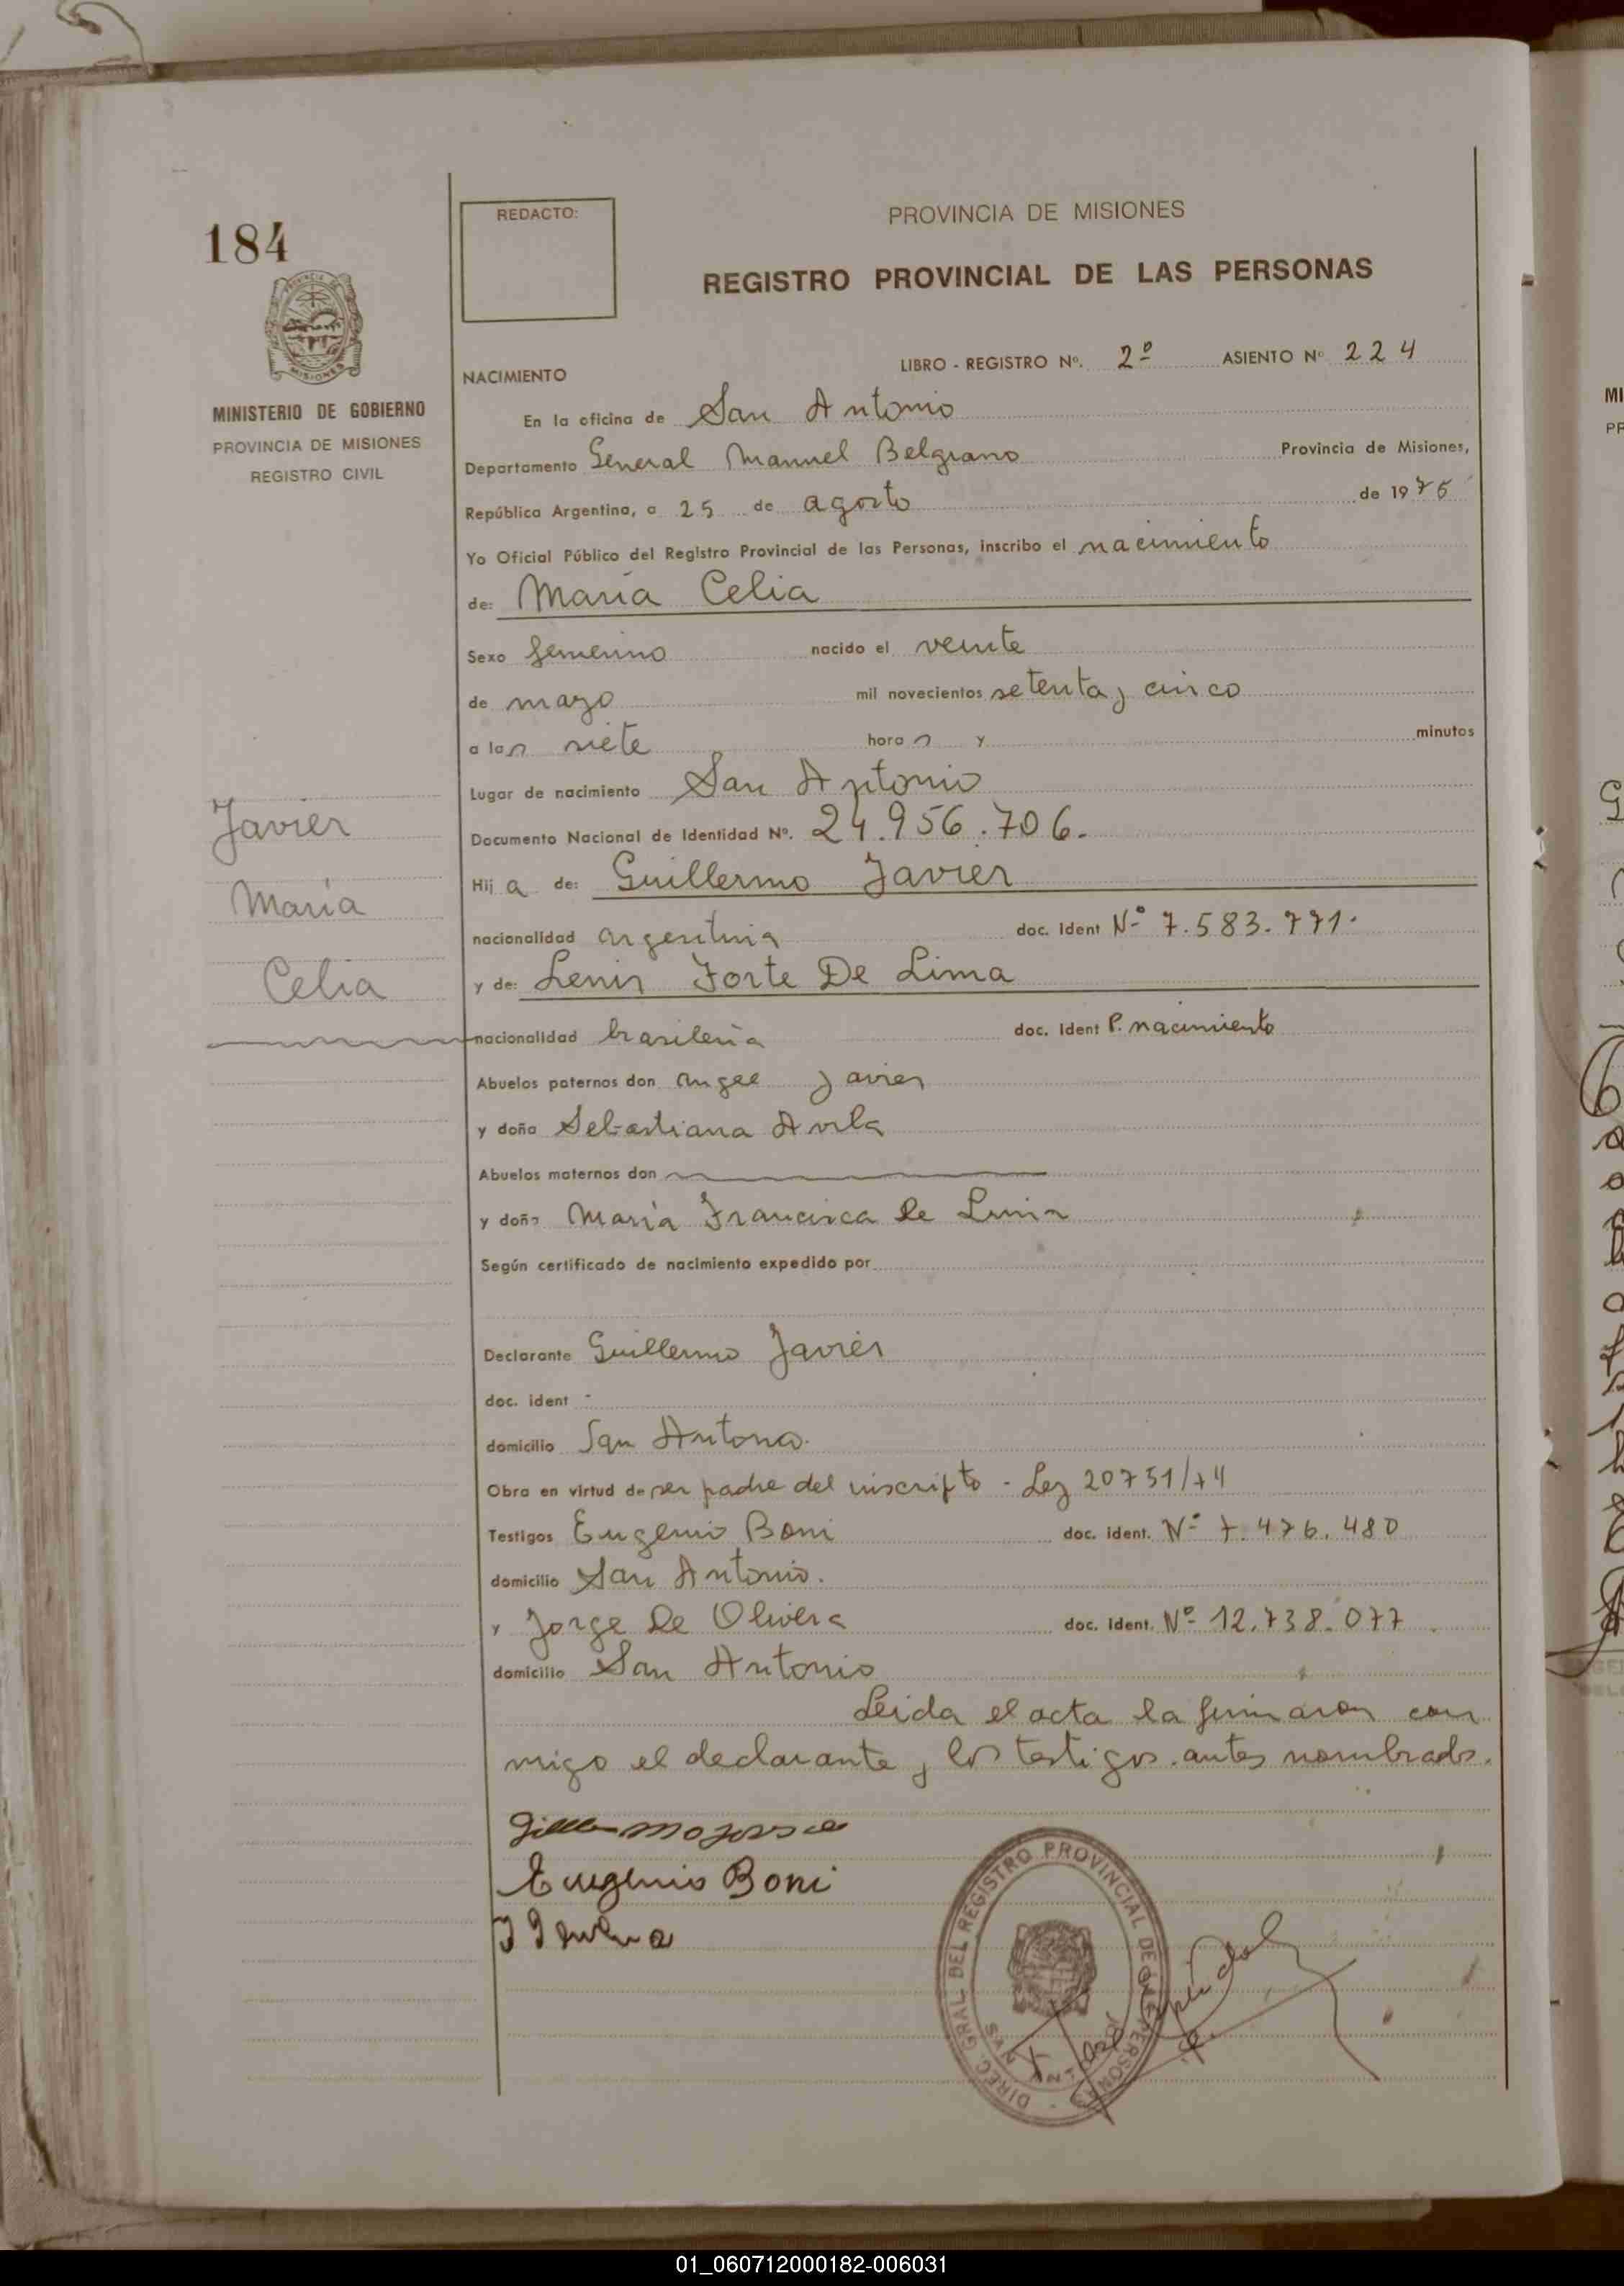 184
REDACTO:
PROVINCIA DE MISIONES
REGISTRO PROVINCIAL DE LAS PERSONAS
MINISTERIO DE GOBIERNO
PROVINCIA DE MISIONES
REGISTRO CIVIL
LIBRO - REGISTRO Nº. 2º ASIENTO Nº 224
NACIMIENTO
En la oficina de San Antonio
Departamento General Manuel Belgrano Provincia de Misiones,
República Argentina, a 25 de agosto de 1975
Yo Oficial Público del Registro Provincial de las Personas, inscribo el nacimiento
de: María Celia
Sexo femenino nacido el veinte
de mayo mil novecientos setenta y cinco
a las siete horas y minutos
Lugar de nacimiento San Antonio
Documento Nacional de Identidad Nº. 24.956.706.
Hija de: Guillermo Javier
nacionalidad argentina doc. Ident Nº 7.583.771.
y de: Lenir Forte De Lima
nacionalidad brasileña doc. Ident P. nacimiento
Javier
María
Celia
Abuelos paternos don Angel Javier
y doña Sebastiana Avila
Abuelos maternos don
y doña María Francisca de
Según certificado de nacimiento expedido por
Declarante Guillermo Javier
doc. ident -
domicilio San Antonio.
Obra en virtud de ser padre del inscripto - Ley 20751/74
Testigos Eugenio Boni doc. ident. Nº 7.476.480
domicilio San Antonio.
y Jorge De Olivera doc. Ident. Nº 12.738.077
domicilio San Antonio
Leida el acta la firmaron con
migo el declarante y los testigos antes nombrados.
Eugenio Boni
DIREC. GRAL DEL REGISTRO PROVINCIAL DE LAS PERSONAS
01_060712000182-006031